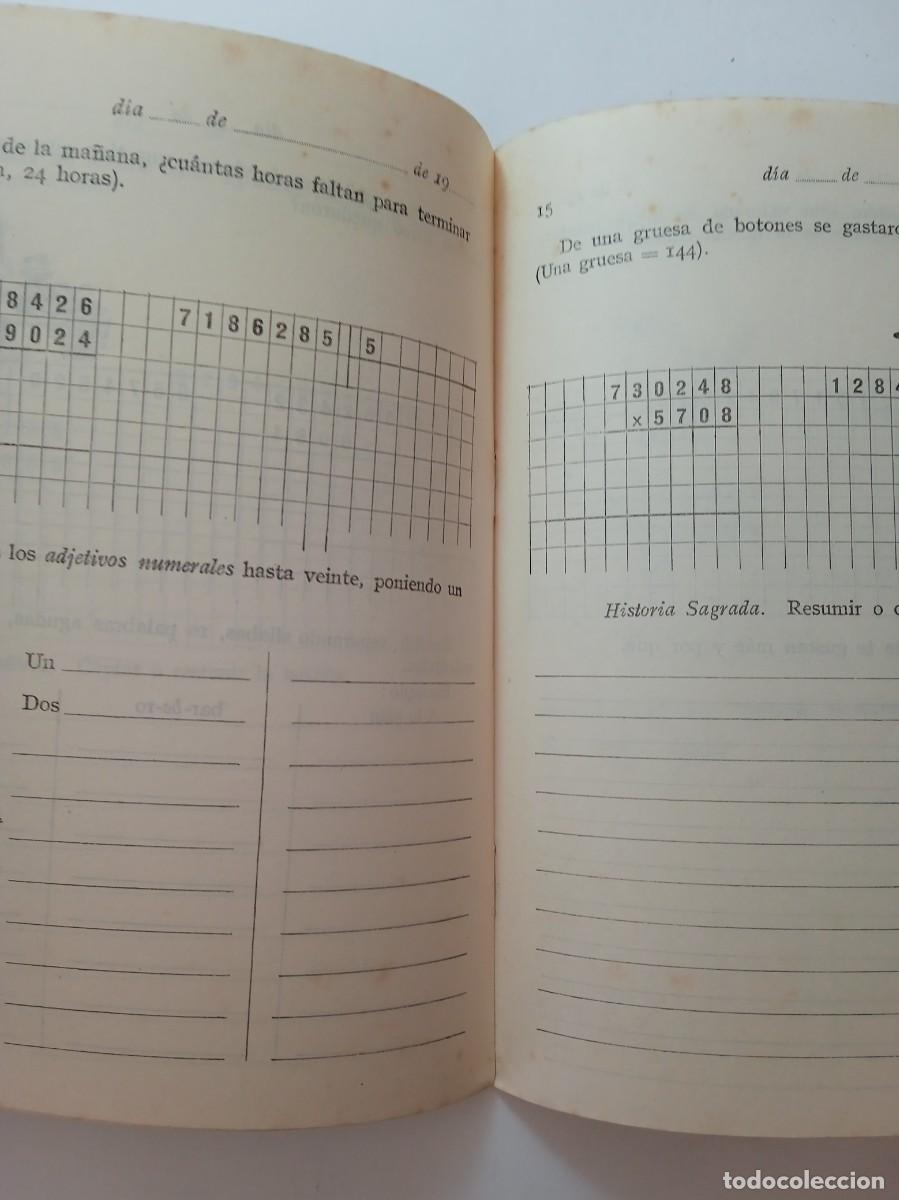 dia de de 19
de la mañana, ¿cuántas horas faltan para terminar
, 24 horas).
8426
9024
7186285 5
los adjetivos numerales hasta veinte, poniendo un
Un
Dos
día de
15
De una gruesa de botones se gastaro
(Una gruesa = 144).
730248
x 5708
1284
Historia Sagrada. Resumir o
todocoleccion